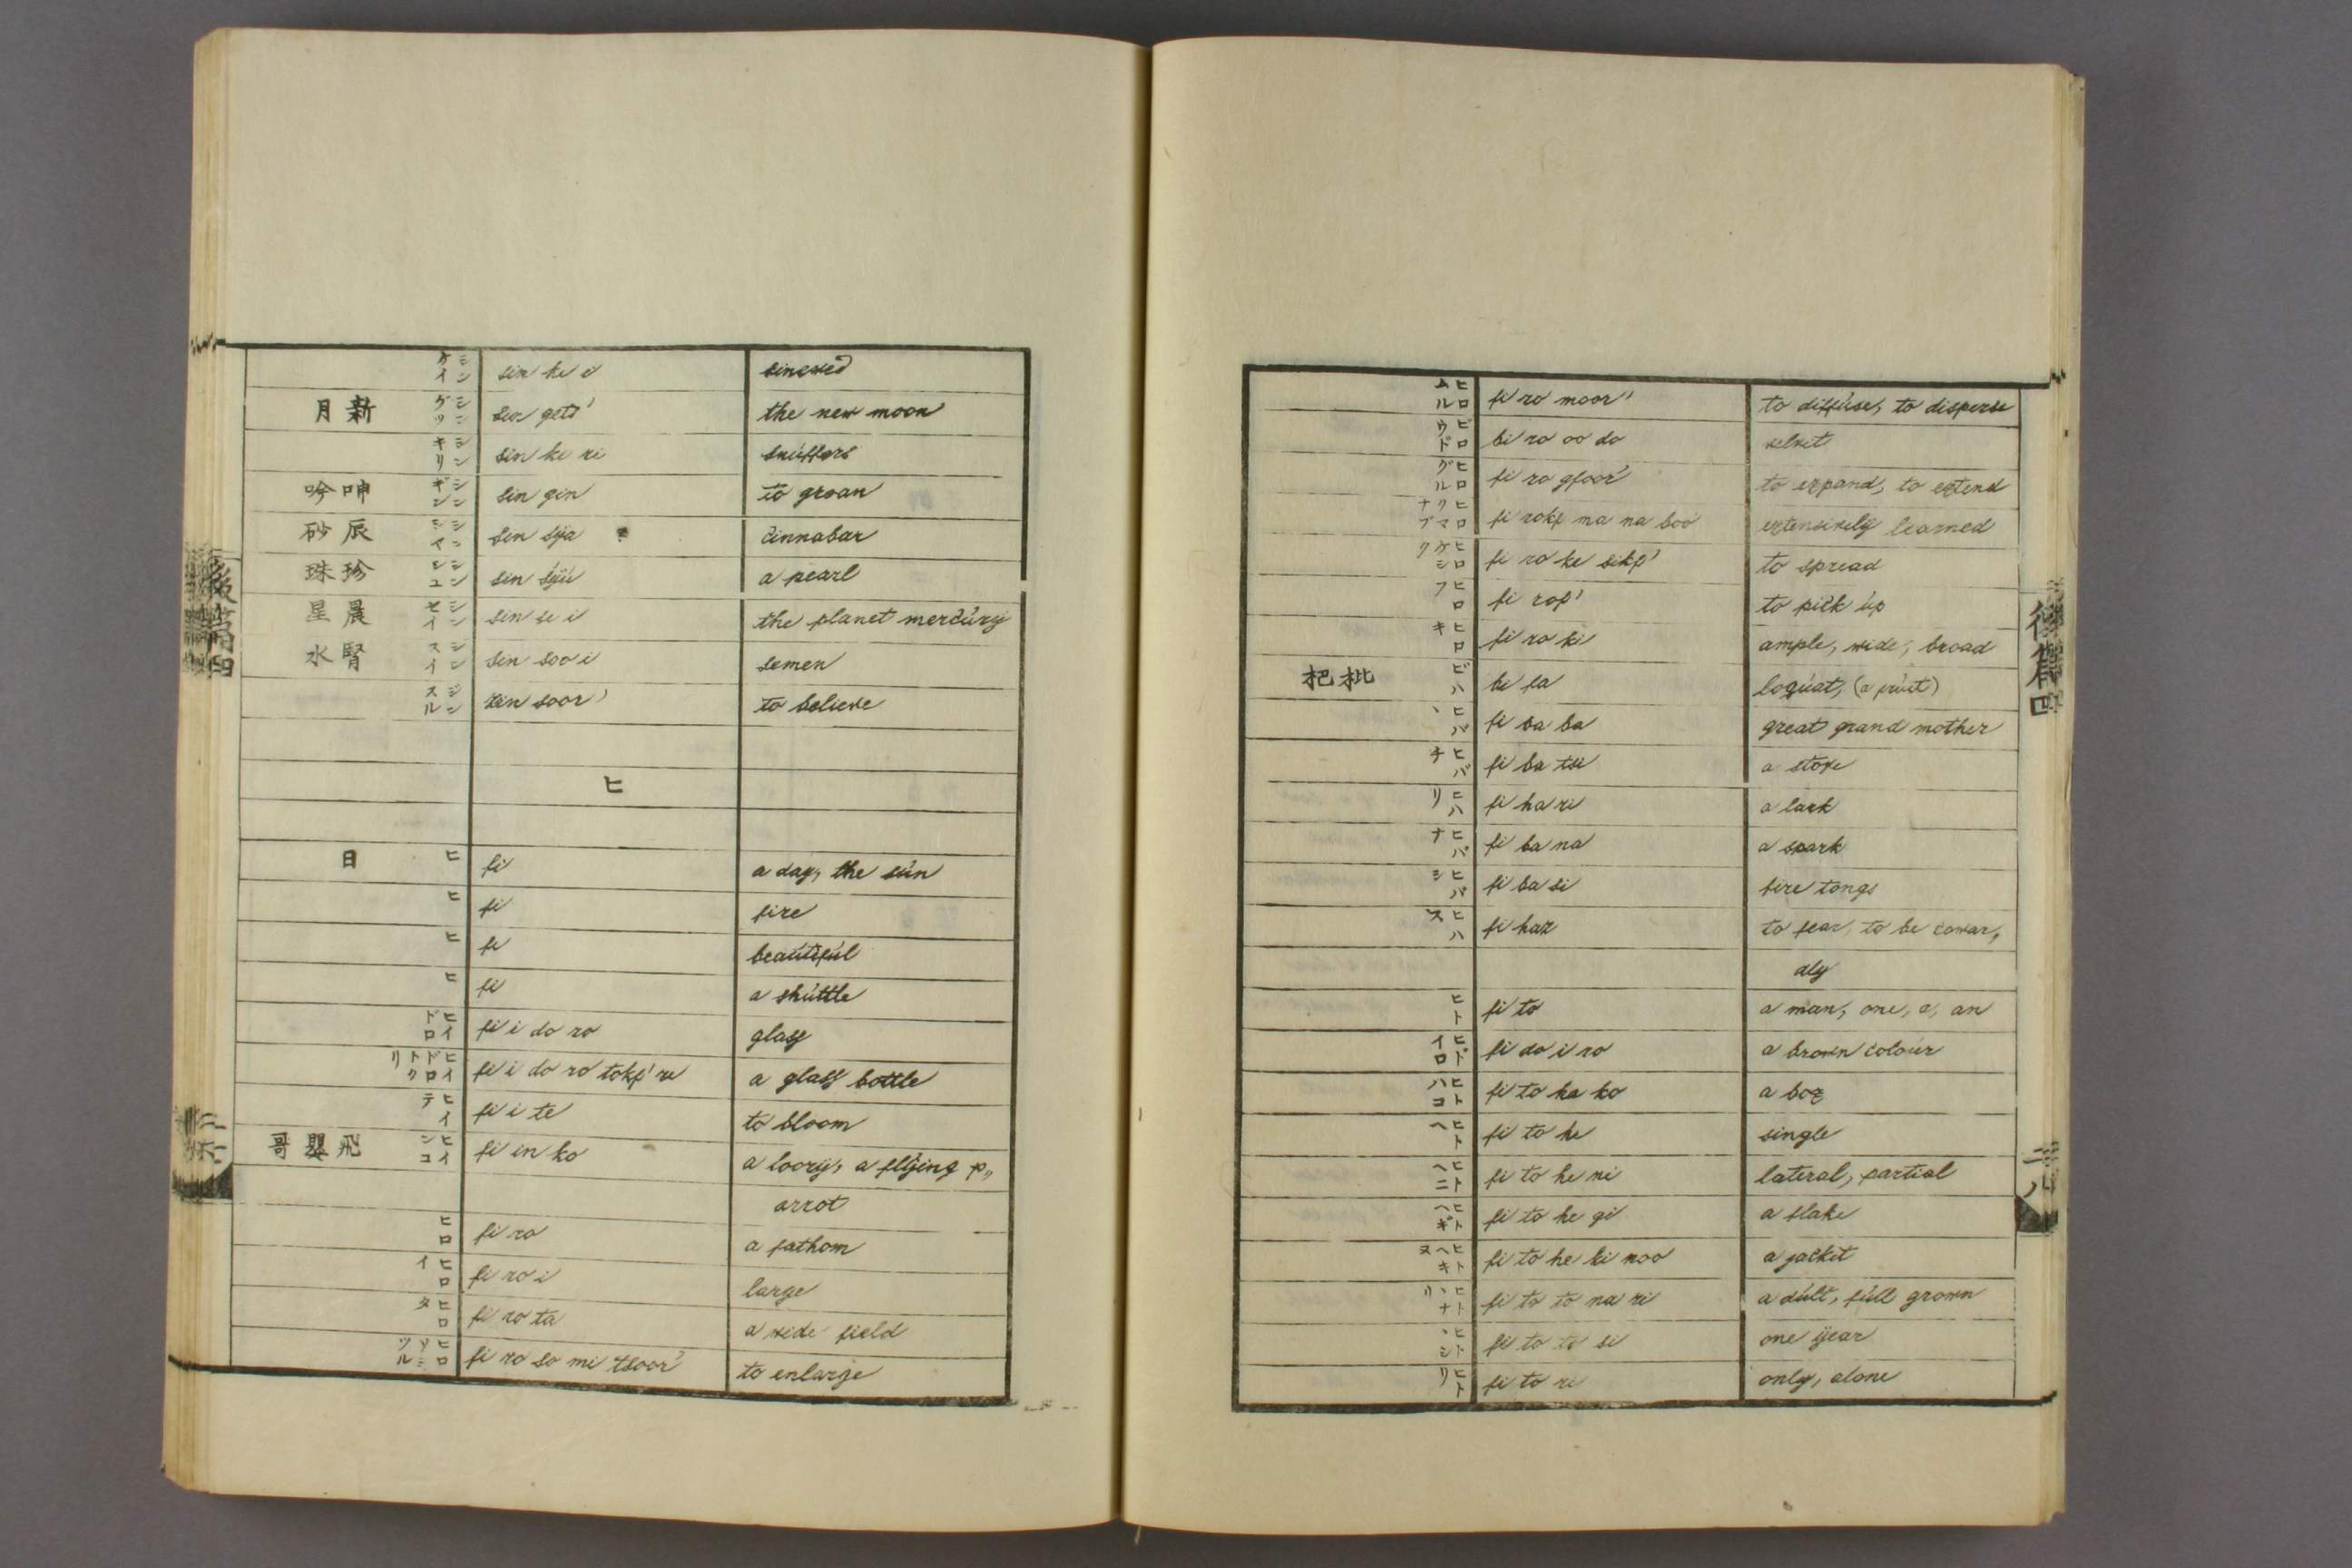 シンケイ sin ke i sinewed
新月 シングツ sin gets' the new moon
シンキリ sin ki ri snúffers
呻吟 シンギン sin gin to groan
辰砂 シンシヤ sin sÿa cinnabar
珍珠 シンシユ sin sÿú a pearl
晨星 シンセイ sin se i the planet mercúrÿ
腎水 シンスイ sin soo i semen
ジンスル zin soor' to believe
ヒ
日 ヒ fi a day, the sún
ヒ fi fire
ヒ fi beaútifúl
ヒ fi a shúttle
ヒイドロ fi i do ro glass
ヒイドロトクリ fi i do ro tokf' ri a glass bottle
ヒイテ fi i te to bloom
飛嬰哥 ヒインコ fi in ko a loorÿ, a flÿing p„
arrot
ヒロ fi ro a fathom
ヒロイ fi ro i large
ヒロタ fi ro ta a wide field
ヒロソミツル fi ro so mi tsoor' to enlarge
後篇四
ヒロムル fi ro moor' to diffúse, to disperse
ビロウド bi ro oo do velvet
ヒログル fi ro gfoor' to expand, to extend
ヒロクマナブ fi rokf ma na boo extensively learned
ヒロケシク fi ro ke sikf' to spread
ヒロフ fi rof' to pick úp
ヒロキ fi ro ki ample, wide, broad
枇杷 ビハ bi fa loqúat, (a frúit)
ヒバヽ fi ba ba great grand mother
ヒバチ fi ba tsi a stove
ヒハリ fi ha ri a lark
ヒバナ fi ba na a spark
ヒバシ fi ba si fire tongs
ヒハス fi haz to fear, to be cowar„
dly
ヒト fi to a man, one, a, an
ヒドイロ fi do i ro a brown coloúr
ヒトハコ fi to ha ko a box
ヒトヘ fi to he single
ヒトヘニ fi to he ni lateral, partial
ヒトヘギ fi to he gi a flake
ヒトヘキヌ fi to he ki noo a jacket
ヒトヽナリ fi to to na ri adúlt, fúll grown
ヒトヽシ fi to to si one ÿear
ヒトリ fi to ri only, alone
後篇四
三八